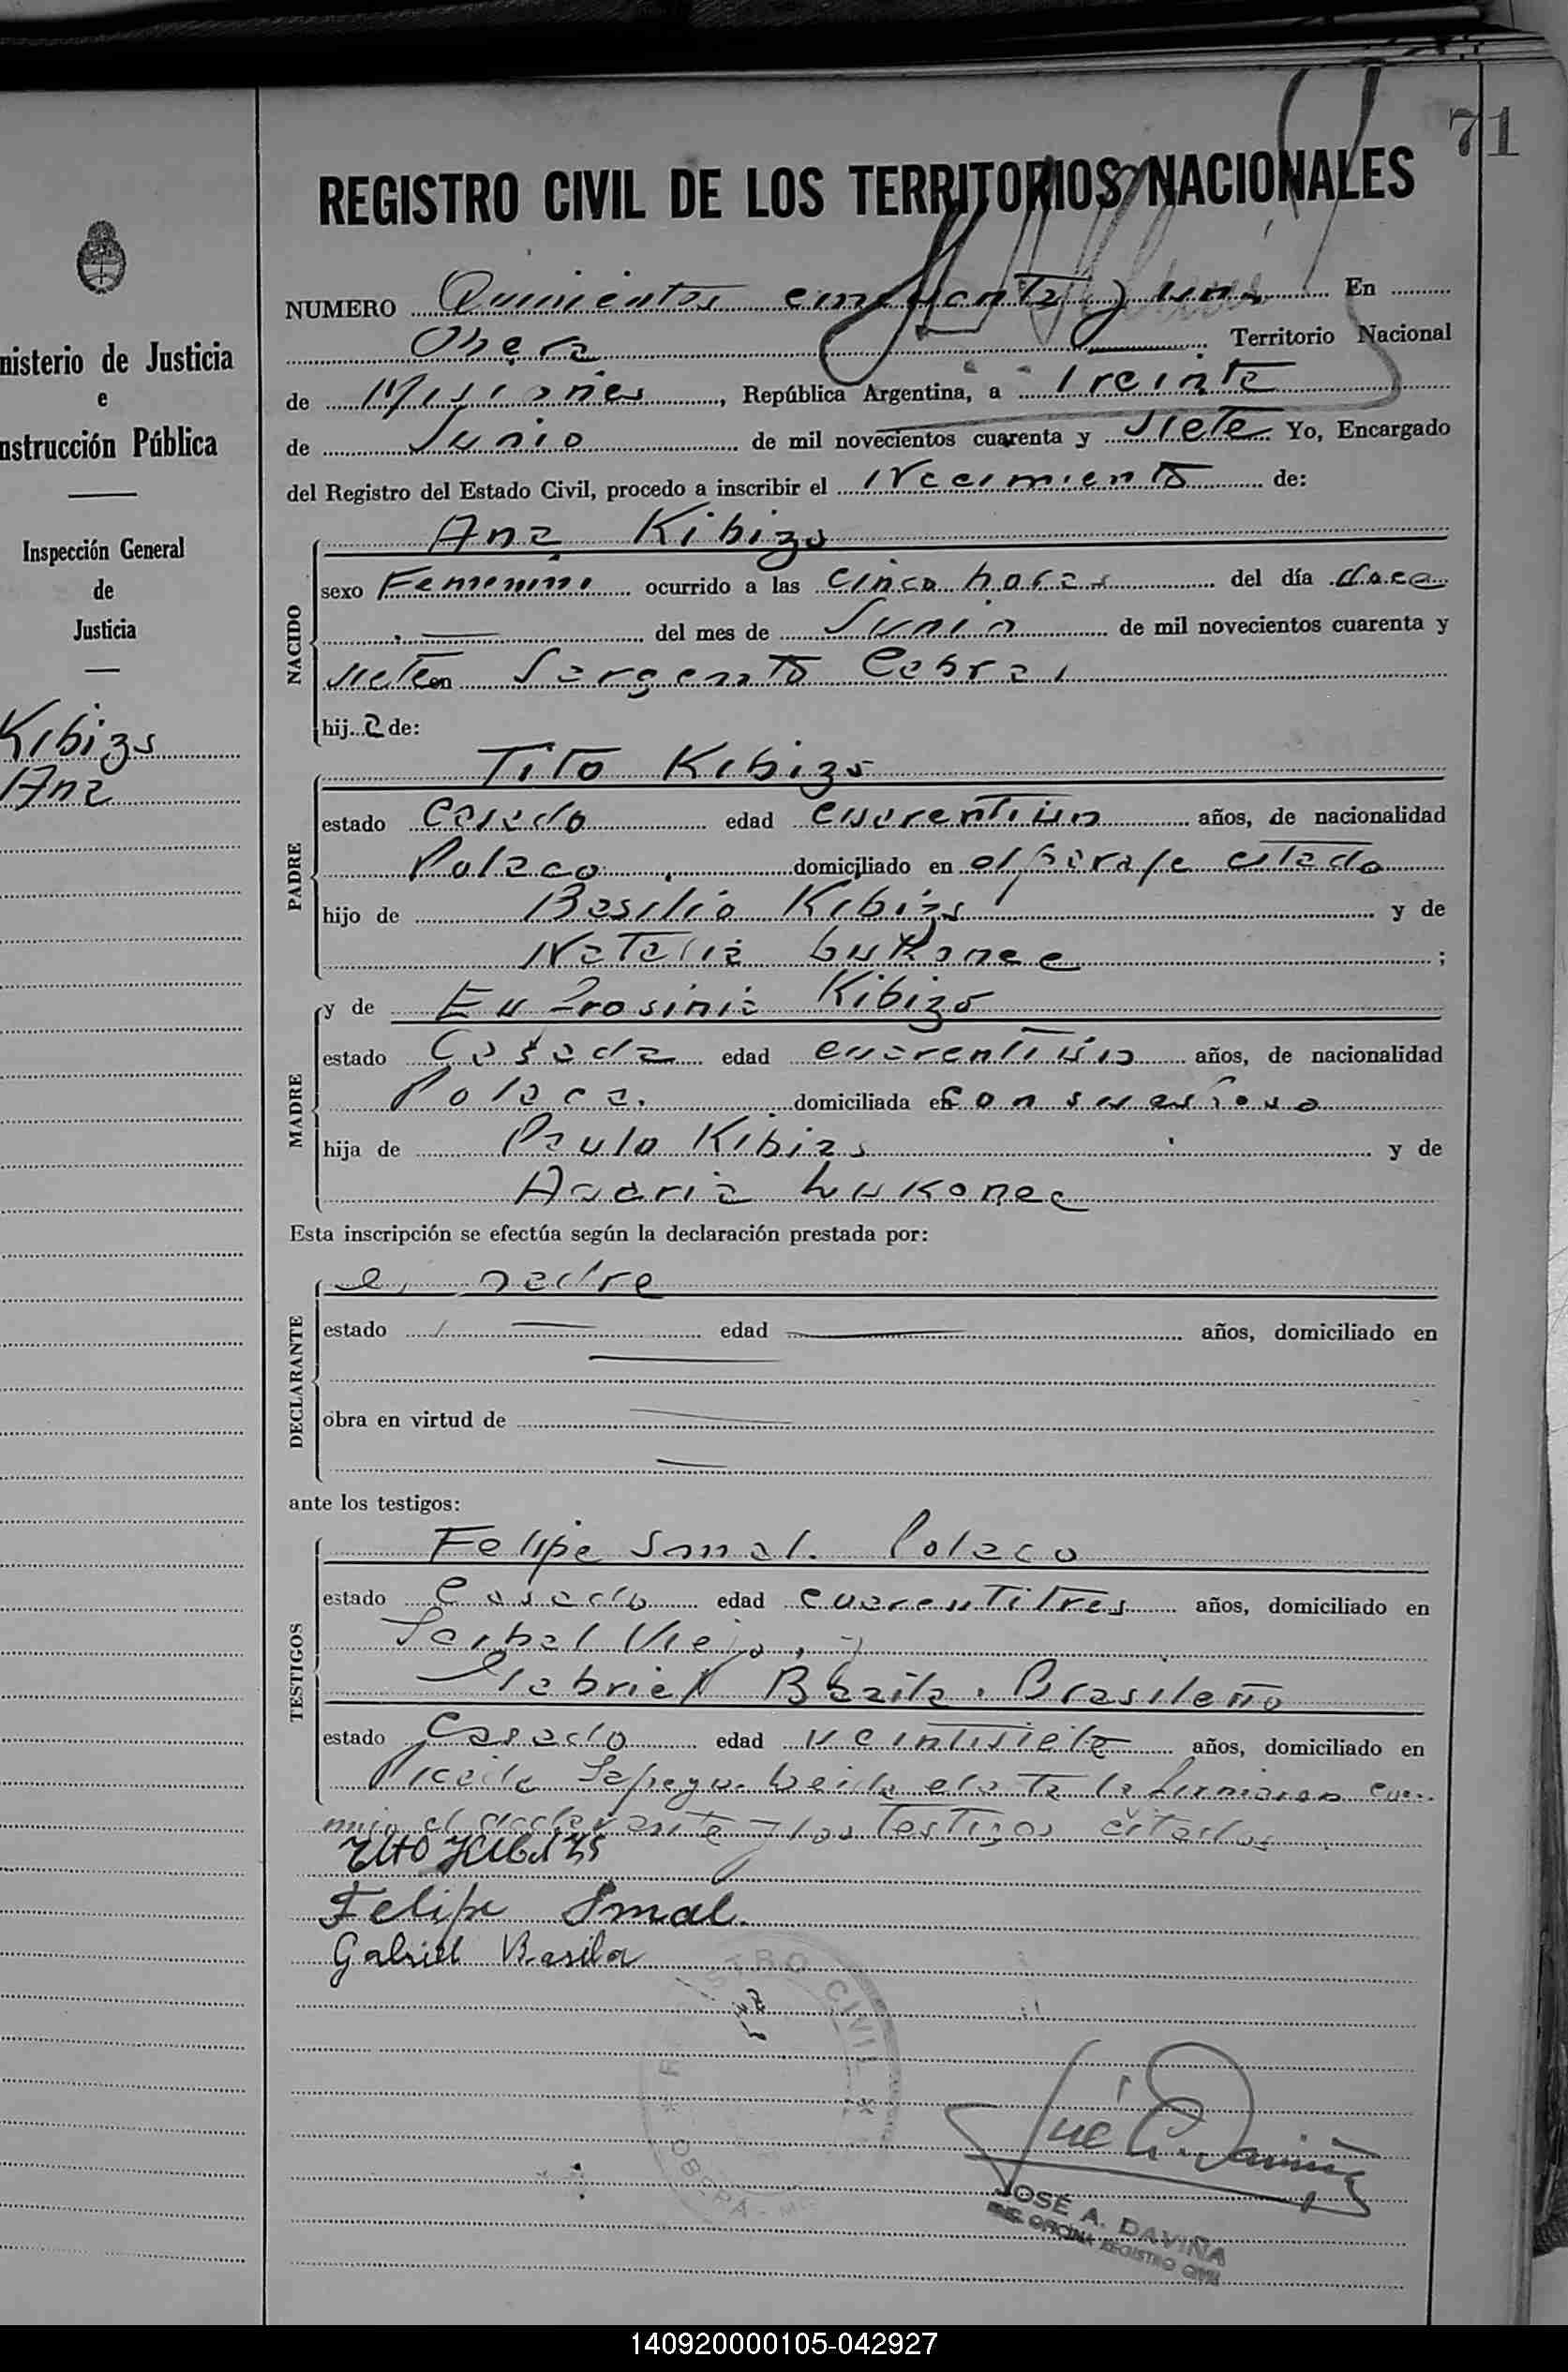 71
REGISTRO CIVIL DE LOS TERRITORIOS NACIONALES
nisterio de Justicia
e
nstrucción Pública
Inspección General
de
Justicia
Kibizs
Ana
NUMERO Quinientos cincuenta y uno En
Obera Territorio Nacional
de Misiones, República Argentina, a Treinta
de Junio de mil novecientos cuarenta y siete Yo, Encargado
del Registro del Estado Civil, procedo a inscribir el Nacimiento de:
NACIDO
Ana Kibizs
sexo Femenino ocurrido a las cinco horas del día doce
del mes de Junio de mil novecientos cuarenta y
siete en Sargento Cabral
hija de:
PADRE
Tito Kibizs
estado Casado edad cuarentiún años, de nacionalidad
Polaco domiciliado en el paraje citado
hijo de Basilio Kibizs y de
Natalia Lukonec;
MADRE
y de Eufrosinia Kibizs
estado Casada edad cuarentiún años, de nacionalidad
Polaca. domiciliada en con su esposo
hija de Paulo Kibizs y de
Lukonec
Esta inscripción se efectúa según la declaración prestada por:
DECLARANTE
el padre
estado edad años, domiciliado en
obra en virtud de
ante los testigos:
TESTIGOS
Felipe Smal. Polaco
estado Casado edad cuarentitres años, domiciliado en
Viejo, y
Gabriel Brasileño
estado Casado edad veintisiete años, domiciliado en
Picada Leida el acta la firmaron con-
migo el declarante y los testigos citados
Felipe Smal.
Gabriel Basila
REGISTRO CIVIL
OBERA - M
JOSÉ A. DAVIÑA
OFICINA REGISTRO CIVIL
140920000105-042927